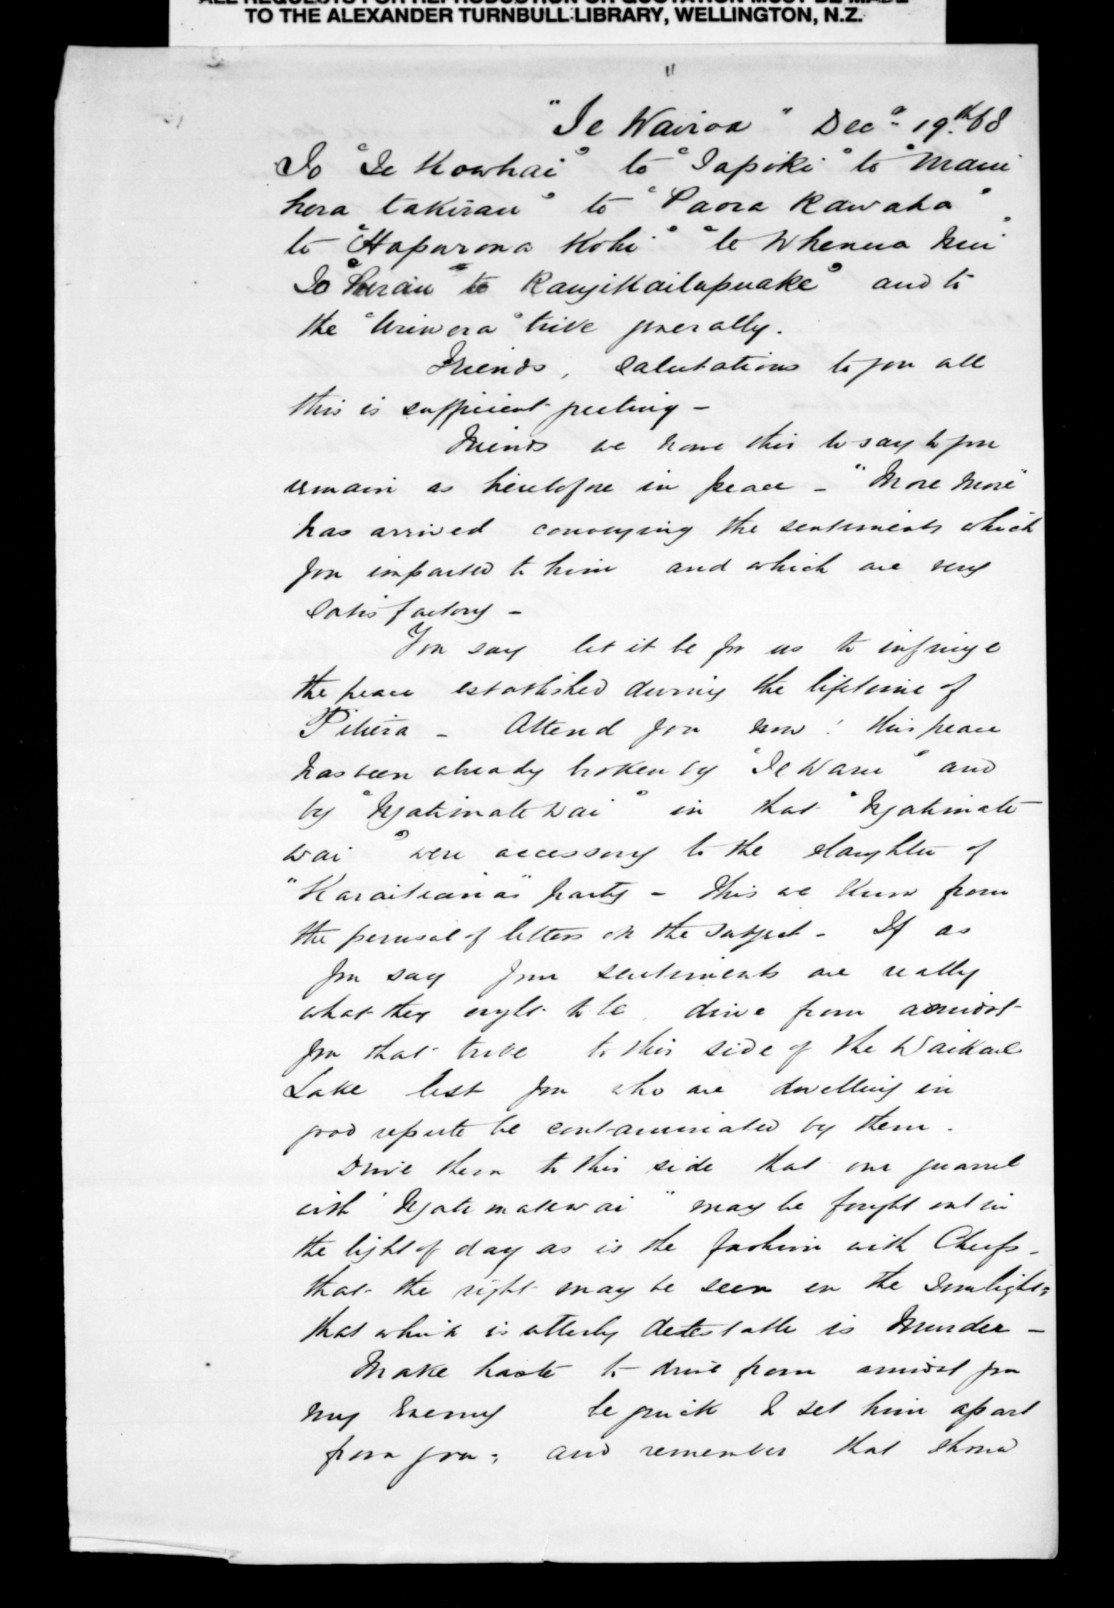 ALL REQUESTS FOR REPRODUCTION OR QUOTATION MUST BE MADE
TO THE ALEXANDER TURNBULL LIBRARY, WELLINGTON, N.Z.
"Te Wairoa" Decr 19th 68
To "Te Kowhai" to "Tapiki" to "Maui
hora takirau" to "Paora Rawaha"
to "Hapurona Kohi" "te Whenua Nui"
To to Rangikaitupuake" and to
the "Uriwera" tribe generally.
Friends, Salutations to you all
this is sufficient greeting -
Friends we have this to say to you
remain as heretofore in peace - "More More"
has arrived conveying the sentiments which
you imparted to him and which are very
satisfactory -
You say let it be for us to infringe
the peace established during the lifetime of
Pitiera - Attend you now! this peace
has been already broken by "Te Waru" and
by "Ngatimatewai" in that "Ngatimate
wai" were accessory to the slaughter of
"Karaitiana's" party - this we know from
the perusal of letters on the subject - If as
you say your sentiments are really
what they ought to be, drive from amidst
you that tribe to this side of the Waikare
Lake lest you who are dwelling in
good repute be contaminated by them.
Drive them to this side that our quarrel
with "Ngatimatewai" may be fought out in
the light of day as is the fashion with Chiefs -
that the right may be seen in the sunlight;
that which is utterly detestable is Murder -
Make haste to drive from amidst you
my Enemy be quick & set him apart
from you; and remember that should